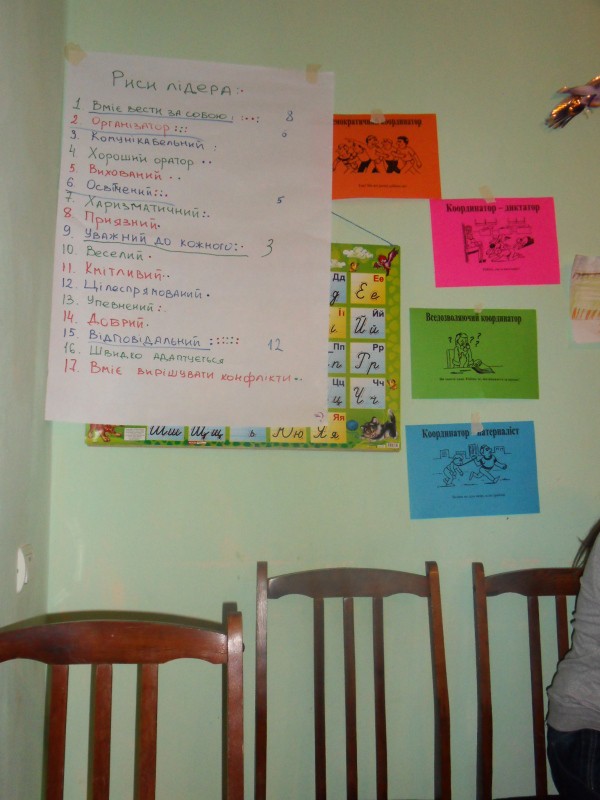 Риси лідера:
1 Вміє вести за собою 8
2. Організатор 6
3. Комунікабельний
4. Хороший оратор
5. Вихований
6. Освічений 5
7. Харизматичний
8. Приязний
9. Уважний до кожного 3
10. Веселий
11. Кмітливий
12 Цілеспрямований
13. Упевнений
14. Добрий
15. Відповідальний 12
16. Швидко адаптується
17. Вміє вирішувати конфлікти
координатор
Координатор – диктатор
Вседозволяючий координатор
Координатор – матеріаліст
Дд Ее
Її Йй
Пп Рр
Цц Чч
Яя
Шш Щщ ь Юю Яя